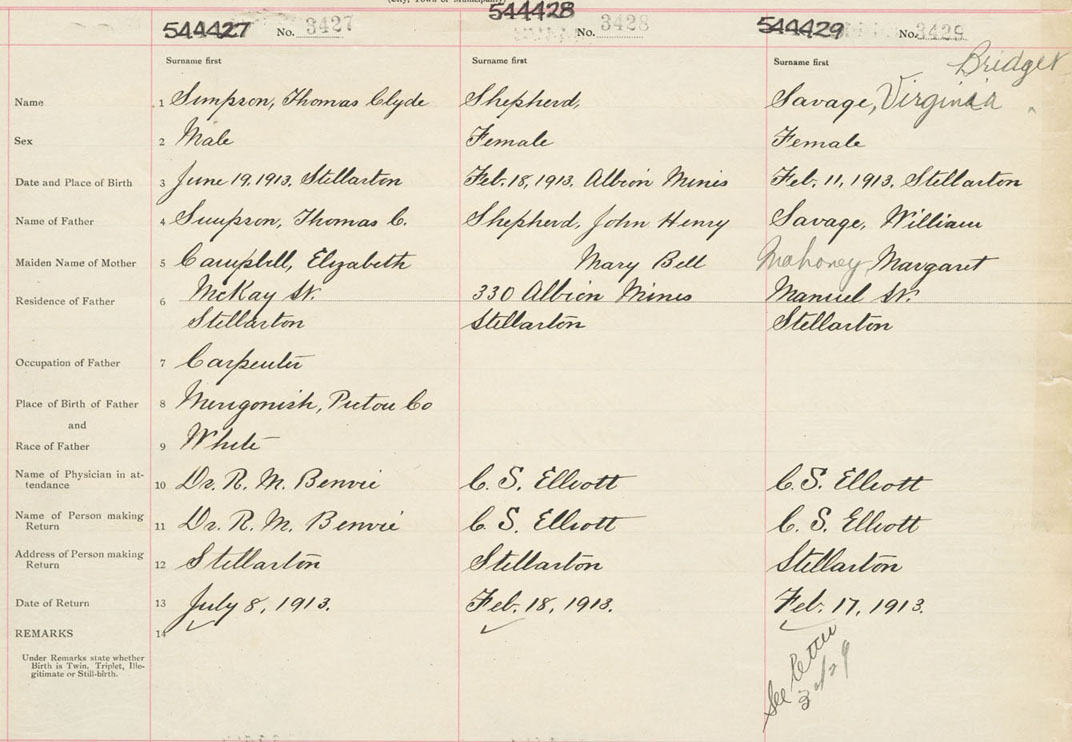 (City, Town or Municipality)
544427 No. 3427 544428 No. 3428 544429 No. 3429
Surname first Surname first Surname first Bridget
Name 1 Simpson, Thomas Clyde Shepherd, Savage, Virginia
Sex 2 Male Female Female
Date and Place of Birth 3 June 19, 1913. Stellarton Feb. 18, 1913. Albion Mines Feb. 11, 1913. Stellarton
Name of Father 4 Simpson, Thomas C. Shepherd, John Henry Savage, William
Maiden Name of Mother 5 Campbell, Elizabeth Mary Bell Mahoney, Margaret
Residence of Father 6 McKay St. 330 Albion Mines Manuel St.
Stellarton Stellarton Stellarton
Occupation of Father 7 Carpenter
Place of Birth of Father 8 Merigonish, Pictou Co
and
Race of Father 9 White
Name of Physician in at-
tendance 10 Dr. R. M. Benvie C. S. Elliott C. S. Elliott
Name of Person making
Return 11 Dr. R. M. Benvie C. S. Elliott C. S. Elliott
Address of Person making
Return 12 Stellarton Stellarton Stellarton
Date of Return 13 July 8, 1913. Feb. 18, 1913. Feb. 17, 1913.
REMARKS 14
Under Remarks state whether
Birth is Twin, Triplet, Ille-
gitimate or Still-birth.
See letter